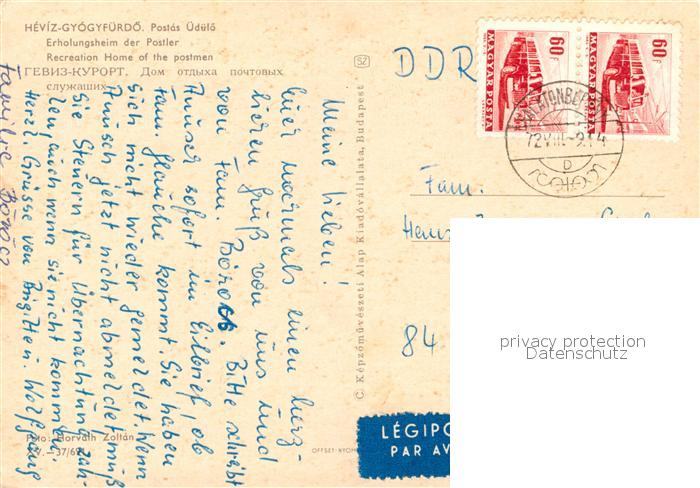 HÉVÍZ-GYÓGYFÜRDŐ. Postás Üdülő
Erholungsheim der Postler
Recreation Home of the postmen
ГЕВИЗ-КУРОРТ. Дом отдыха почтовых
служащих
Meine Lieben!
hier nochmals einen herz-
lichen Gruß von uns und
von Fam. Böröcz. Bitte schreibt
Heinser sofort im Eilbrief, ob
Fam. Glauche kommt. Sie haben
sich nicht wieder gemeldet. Wenn
Pünsch jetzt nicht abmeldet, muß
Sie Steuern für Übernachtung zah-
len, auch wenn sie nicht kommen.
Herzl. Grüsse von Brigitte u. Wolfgang
Familie Böröcz
Foto: Horváth Zoltán
V.—37/69
SZ
C. Képzőművészeti Alap Kiadóvállalata, Budapest
OFFSET-NYOM
DDR
60f
MAGYAR POSTA
60f
MAGYAR POSTA
72 VIII-9.14
D
Fam.
84
LÉGIPO
PAR AV
privacy protection
Datenschutz